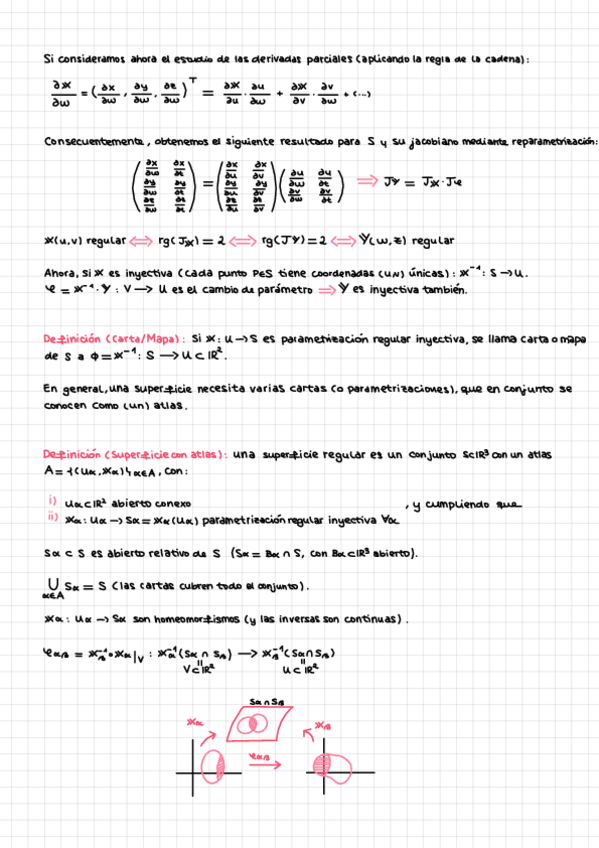 Si consideramos ahora el estudio de las derivadas parciales (aplicando la regla de la cadena):
∂𝕏/∂w = (∂x/∂w, ∂y/∂w, ∂z/∂w)^T = ∂𝕏/∂u · ∂u/∂w + ∂𝕏/∂v · ∂v/∂w + (...)
Consecuentemente, obtenemos el siguiente resultado para S y su jacobiano mediante reparametrización:
(∂x/∂w ∂x/∂t ; ∂y/∂w ∂y/∂t ; ∂z/∂w ∂z/∂t) = (∂x/∂u ∂x/∂v ; ∂y/∂u ∂y/∂v ; ∂z/∂u ∂z/∂v) (∂u/∂w ∂u/∂t ; ∂v/∂w ∂v/∂t) ⟹ J𝕐 = J𝕏 · Jφ
𝕏(u,v) regular ⟺ rg(J𝕏) = 2 ⟺ rg(J𝕐) = 2 ⟺ 𝕐(w,z) regular
Ahora, si 𝕏 es inyectiva (cada punto P∈S tiene coordenadas (u,v) únicas): 𝕏⁻¹: S → U.
φ = 𝕏⁻¹ · 𝕐 : V → U es el cambio de parámetro ⟹ 𝕐 es inyectiva también.
Definición (Carta/Mapa): Si 𝕏: U → S es parametrización regular inyectiva, se llama carta o mapa
de S a Φ = 𝕏⁻¹: S → U ⊂ ℝ².
En general, una superficie necesita varias cartas (o parametrizaciones), que en conjunto se
conocen como (un) atlas.
Definición (Superficie con atlas): una superficie regular es un conjunto S⊂ℝ³ con un atlas
A = {(Uα, 𝕏α)}α∈A, con:
i) Uα ⊂ ℝ² abierto conexo , y cumpliendo que
ii) 𝕏α: Uα → Sα = 𝕏α(Uα) parametrización regular inyectiva ∀α
Sα ⊂ S es abierto relativo de S (Sα = Bα ∩ S, con Bα⊂ℝ³ abierto).
⋃α∈A Sα = S (las cartas cubren todo el conjunto).
𝕏α: Uα → Sα son homeomorfismos (y las inversas son continuas).
φαβ = 𝕏β⁻¹ ∘ 𝕏α|V : 𝕏α⁻¹(Sα ∩ Sβ) → 𝕏β⁻¹(Sα ∩ Sβ)
V⊂ℝ² U⊂ℝ²
Sα ∩ Sβ
𝕏α 𝕏β
φαβ